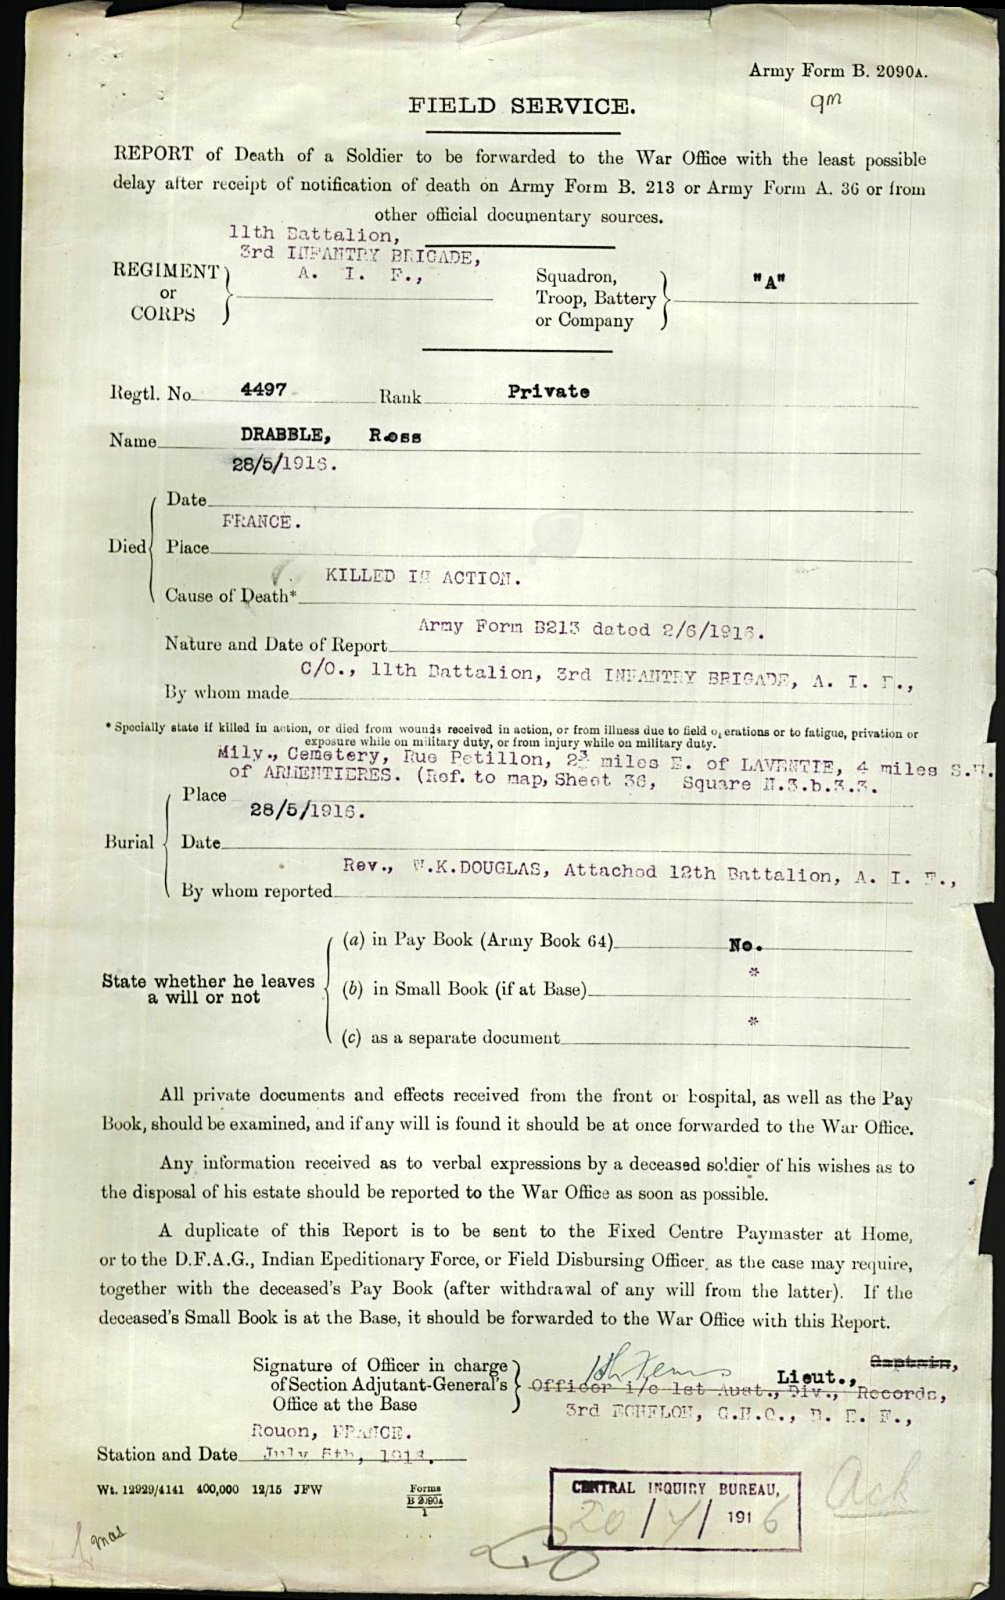 Army Form B. 2090A.
FIELD SERVICE.
REPORT of Death of a Soldier to be forwarded to the War Office with the least possible
delay after receipt of notification of death on Army Form B. 213 or Army Form A. 36 or from
other official documentary sources.
11th Battalion,
3rd INFANTRY BRIGADE,
A. I. F.,
REGIMENT
or
CORPS
Squadron,
Troop, Battery
or Company
"A"
Regtl. No. 4497 Rank Private
Name DRABBLE, Ross
28/5/1916.
Date
FRANCE.
Died Place
KILLED IN ACTION.
Cause of Death*
Army Form B213 dated 2/6/1916.
Nature and Date of Report
C/O., 11th Battalion, 3rd INFANTRY BRIGADE, A. I. F.,
By whom made
* Specially state if killed in action, or died from wounds received in action, or from illness due to field operations or to fatigue, privation or
exposure while on military duty, or from injury while on military duty.
Mily., Cemetery, Rue Petillon, 2¾ miles E. of LAVENTIE, 4 miles S.W.
of ARMENTIERES. (Ref. to map, Sheet 36, Square N.3.b.3.3.
Place
28/5/1916.
Burial Date
Rev., W.K.DOUGLAS, Attached 12th Battalion, A. I. F.,
By whom reported
State whether he leaves
a will or not
(a) in Pay Book (Army Book 64) No.
(b) in Small Book (if at Base) *
(c) as a separate document *
All private documents and effects received from the front or hospital, as well as the Pay
Book, should be examined, and if any will is found it should be at once forwarded to the War Office.
Any information received as to verbal expressions by a deceased soldier of his wishes as to
the disposal of his estate should be reported to the War Office as soon as possible.
A duplicate of this Report is to be sent to the Fixed Centre Paymaster at Home,
or to the D.F.A.G., Indian Epeditionary Force, or Field Disbursing Officer, as the case may require,
together with the deceased's Pay Book (after withdrawal of any will from the latter). If the
deceased's Small Book is at the Base, it should be forwarded to the War Office with this Report.
Signature of Officer in charge
of Section Adjutant-General's
Office at the Base
Captain,
Lieut.,
Officer i/c 1st Aust., Div., Records,
3rd ECHELON, G.H.Q., B. E. F.,
Rouen, FRANCE.
Station and Date July 5th, 1916.
Wt. 12929/4141 400,000 12/15 JFW
Forms
B 2090A
1
CENTRAL INQUIRY BUREAU,
20/7/1916
Ack